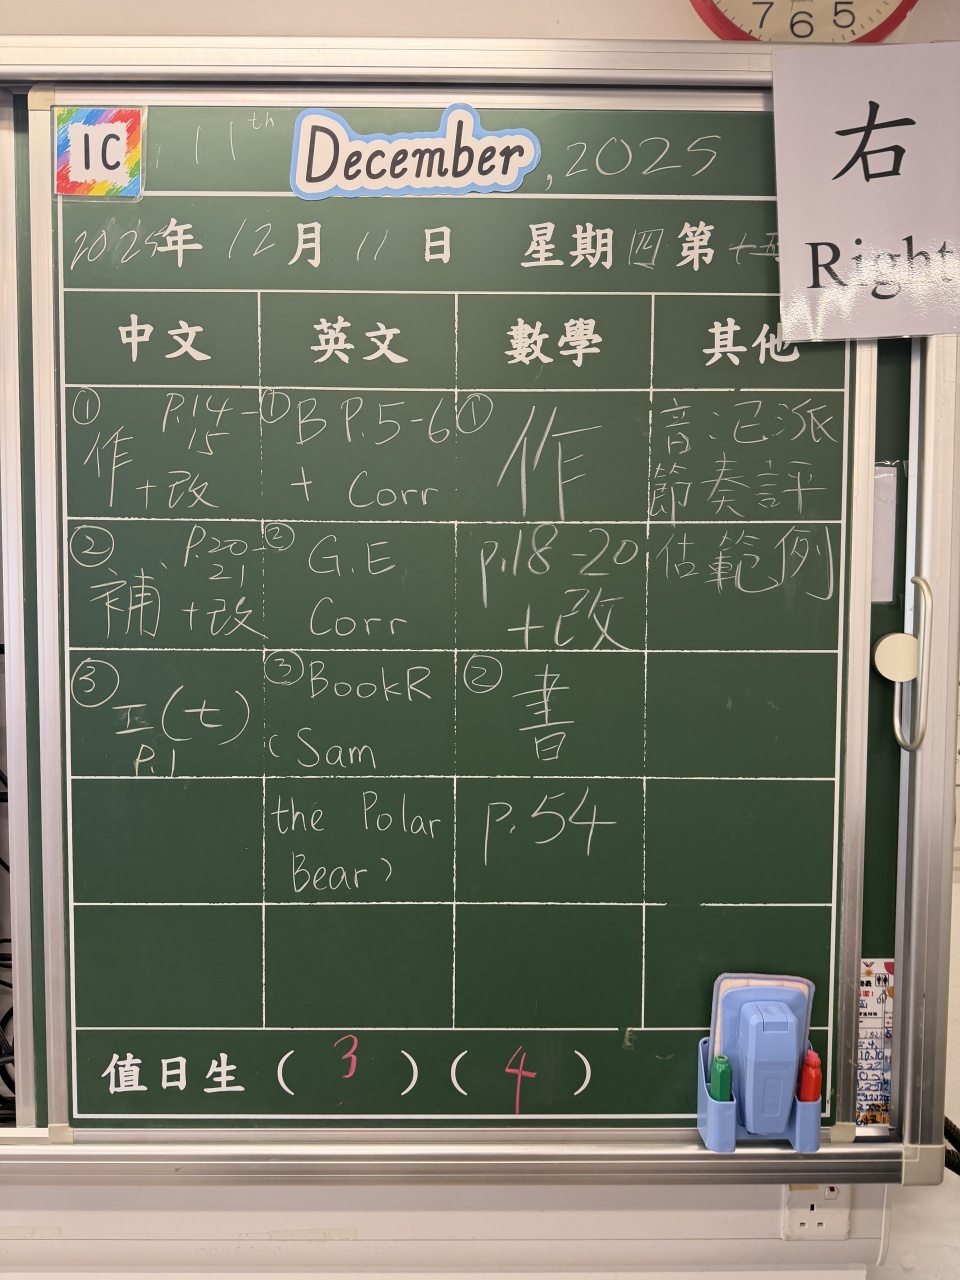 7 6 5
1C
11th December, 2025
右
Right
2025年 12月 11日 星期四 第十五
中文 英文 數學 其他
① P.14-15
作 + 改
② P.20-21
補 + 改
③ 工(七)
P.1
① B P.5-6
+ Corr
② G.E
Corr
③ BookR
(Sam
the Polar
Bear)
① 作
p.18-20
+改
② 書
p.54
音:已派
節奏評
估範例
值日生 ( 3 ) ( 4 )